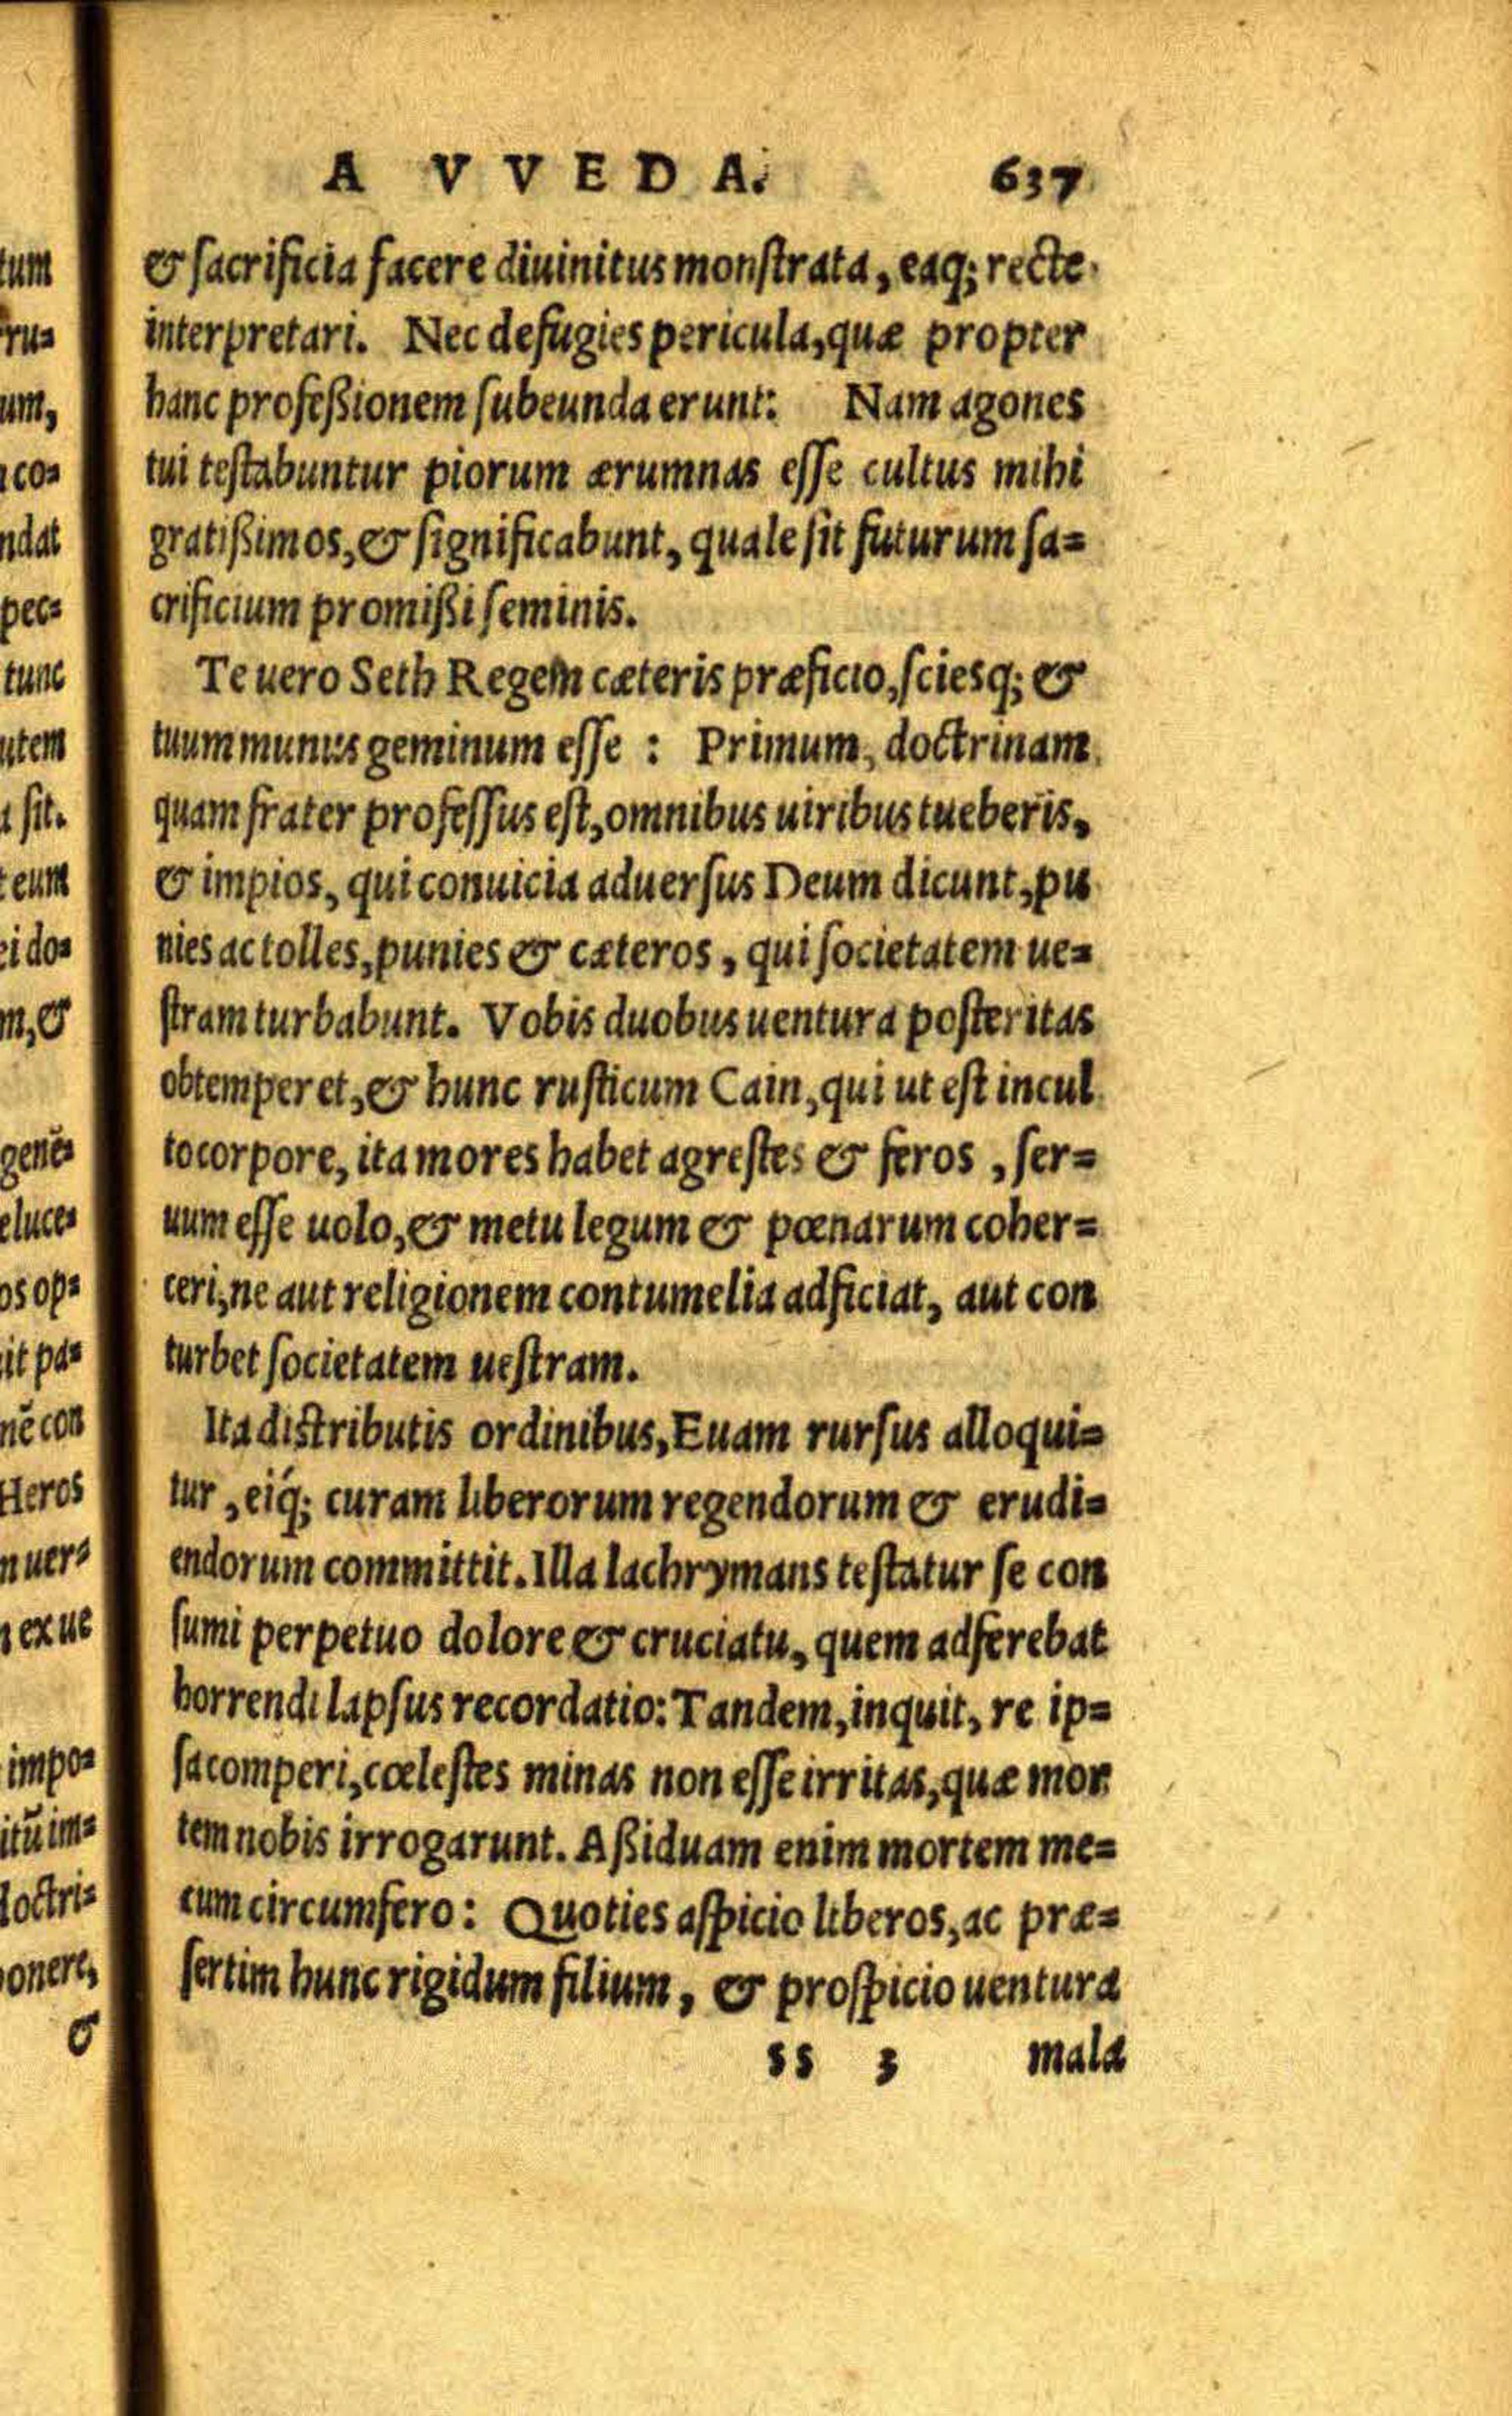 A VVEDA. 637
& sacrificia facere diuinitus monstrata, eaq; recte
interpretari. Nec defugies pericula, quæ propter
hanc profeßionem subeunda erunt: Nam agones
tui testabuntur piorum ærumnas esse cultus mihi
gratißimos, & significabunt, quale sit futurum sa=
crificium promißi seminis.
Te uero Seth Regem cæteris præficio, sciesq; &
tuum munus geminum esse : Primum, doctrinam
quam frater professus est, omnibus uiribus tueberis,
& impios, qui conuicia aduersus Deum dicunt, pu
nies ac tolles, punies & cæteros, qui societatem ue=
stram turbabunt. Vobis duobus uentura posteritas
obtemperet, & hunc rusticum Cain, qui ut est incul
to corpore, ita mores habet agrestes & feros, ser=
uum esse uolo, & metu legum & pœnarum coher=
ceri, ne aut religionem contumelia adficiat, aut con
turbet societatem uestram.
Ita distributis ordinibus, Euam rursus alloqui=
tur, eiq́; curam liberorum regendorum & erudi=
endorum committit. Illa lachrymans testatur se con
sumi perpetuo dolore & cruciatu, quem adferebat
horrendi lapsus recordatio: Tandem, inquit, re ip=
sa comperi, cœlestes minas non esse irritas, quæ mor
tem nobis irrogarunt. Aßiduam enim mortem me=
cum circumfero: Quoties aspicio liberos, ac præ=
sertim hunc rigidum filium, & prospicio uentura
ss 3 mala
tum
ru=
um,
co=
ndat
pec=
tunc
utem
sit.
eum
ei do=
m, &
genē=
eluce=
os op=
it pa=
nē con
Heros
n uer=
ex ue
impo=
itū im=
doctri=
onere,
&